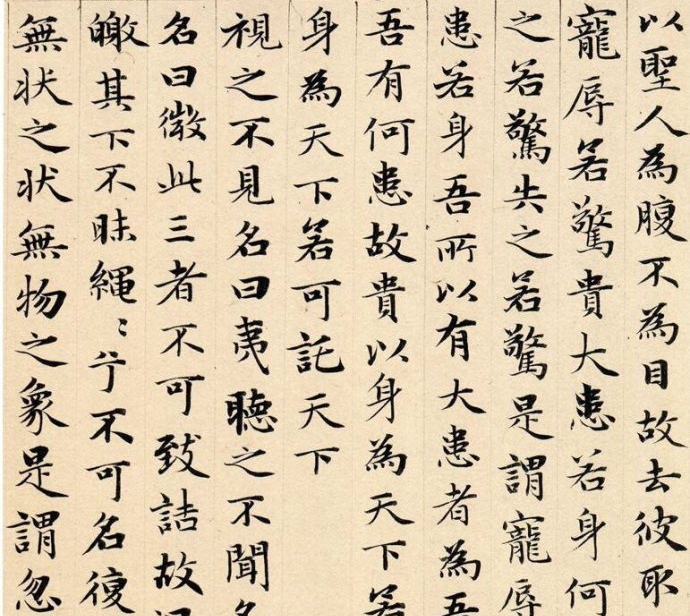 以聖人為腹不為目故去彼取
寵辱若驚貴大患若身何
之若驚失之若驚是謂寵辱
患若身吾所以有大患者為吾
吾有何患故貴以身為天下若
身為天下若可託天下
視之不見名曰夷聽之不聞名
名曰微此三者不可致詰故
皦其下不昧繩〻兮不可名復
無狀之狀無物之象是謂忽